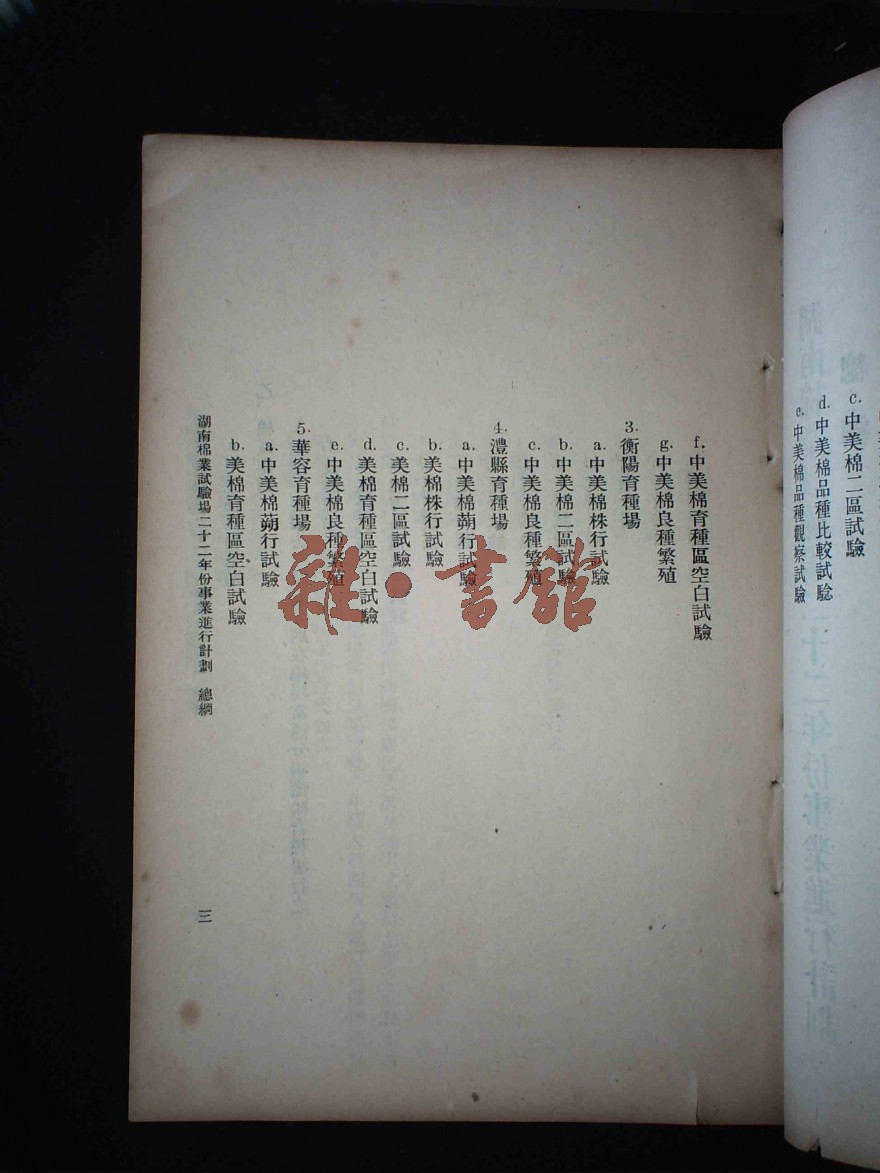 c. 中美棉二區試驗
d. 中美棉品種比較試驗
e. 中美棉品種觀察試驗
f. 中美棉育種區空白試驗
g. 中美棉良種繁殖
3. 衡陽育種場
a. 中美棉株行試驗
b. 中美棉二區試驗
c. 中美棉良種繁殖
4. 澧縣育種場
a. 中美棉蒴行試驗
b. 美棉株行試驗
c. 美棉二區試驗
d. 美棉育種區空白試驗
e. 中美棉良種繁殖
5. 華容育種場
a. 中美棉蒴行試驗
b. 美棉育種區空白試驗
湖南棉業試驗場二十二年份事業進行計劃 總綱
三
雜·書館